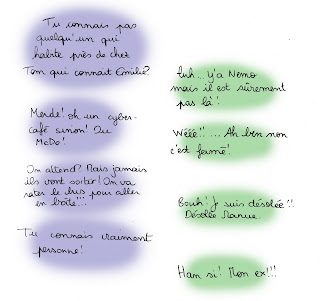 Tu connais pas
quelqu'un qui
habite près de chez
Tom qui connait Emilie?
Auh... y'a Nemo
mais il est sûrement
pas là!
Merde! oh un cyber-
café sinon! Ou
McDo!
Wééé!!... Ah ben non
c'est fermé!
On attend? Mais jamais
ils vont sortir! On va
rater le bus pour aller
en boîte!!!
Bouh! Je suis désolée!!
Désolée
Tu connais vraiment
personne!
Han si! Mon ex!!!